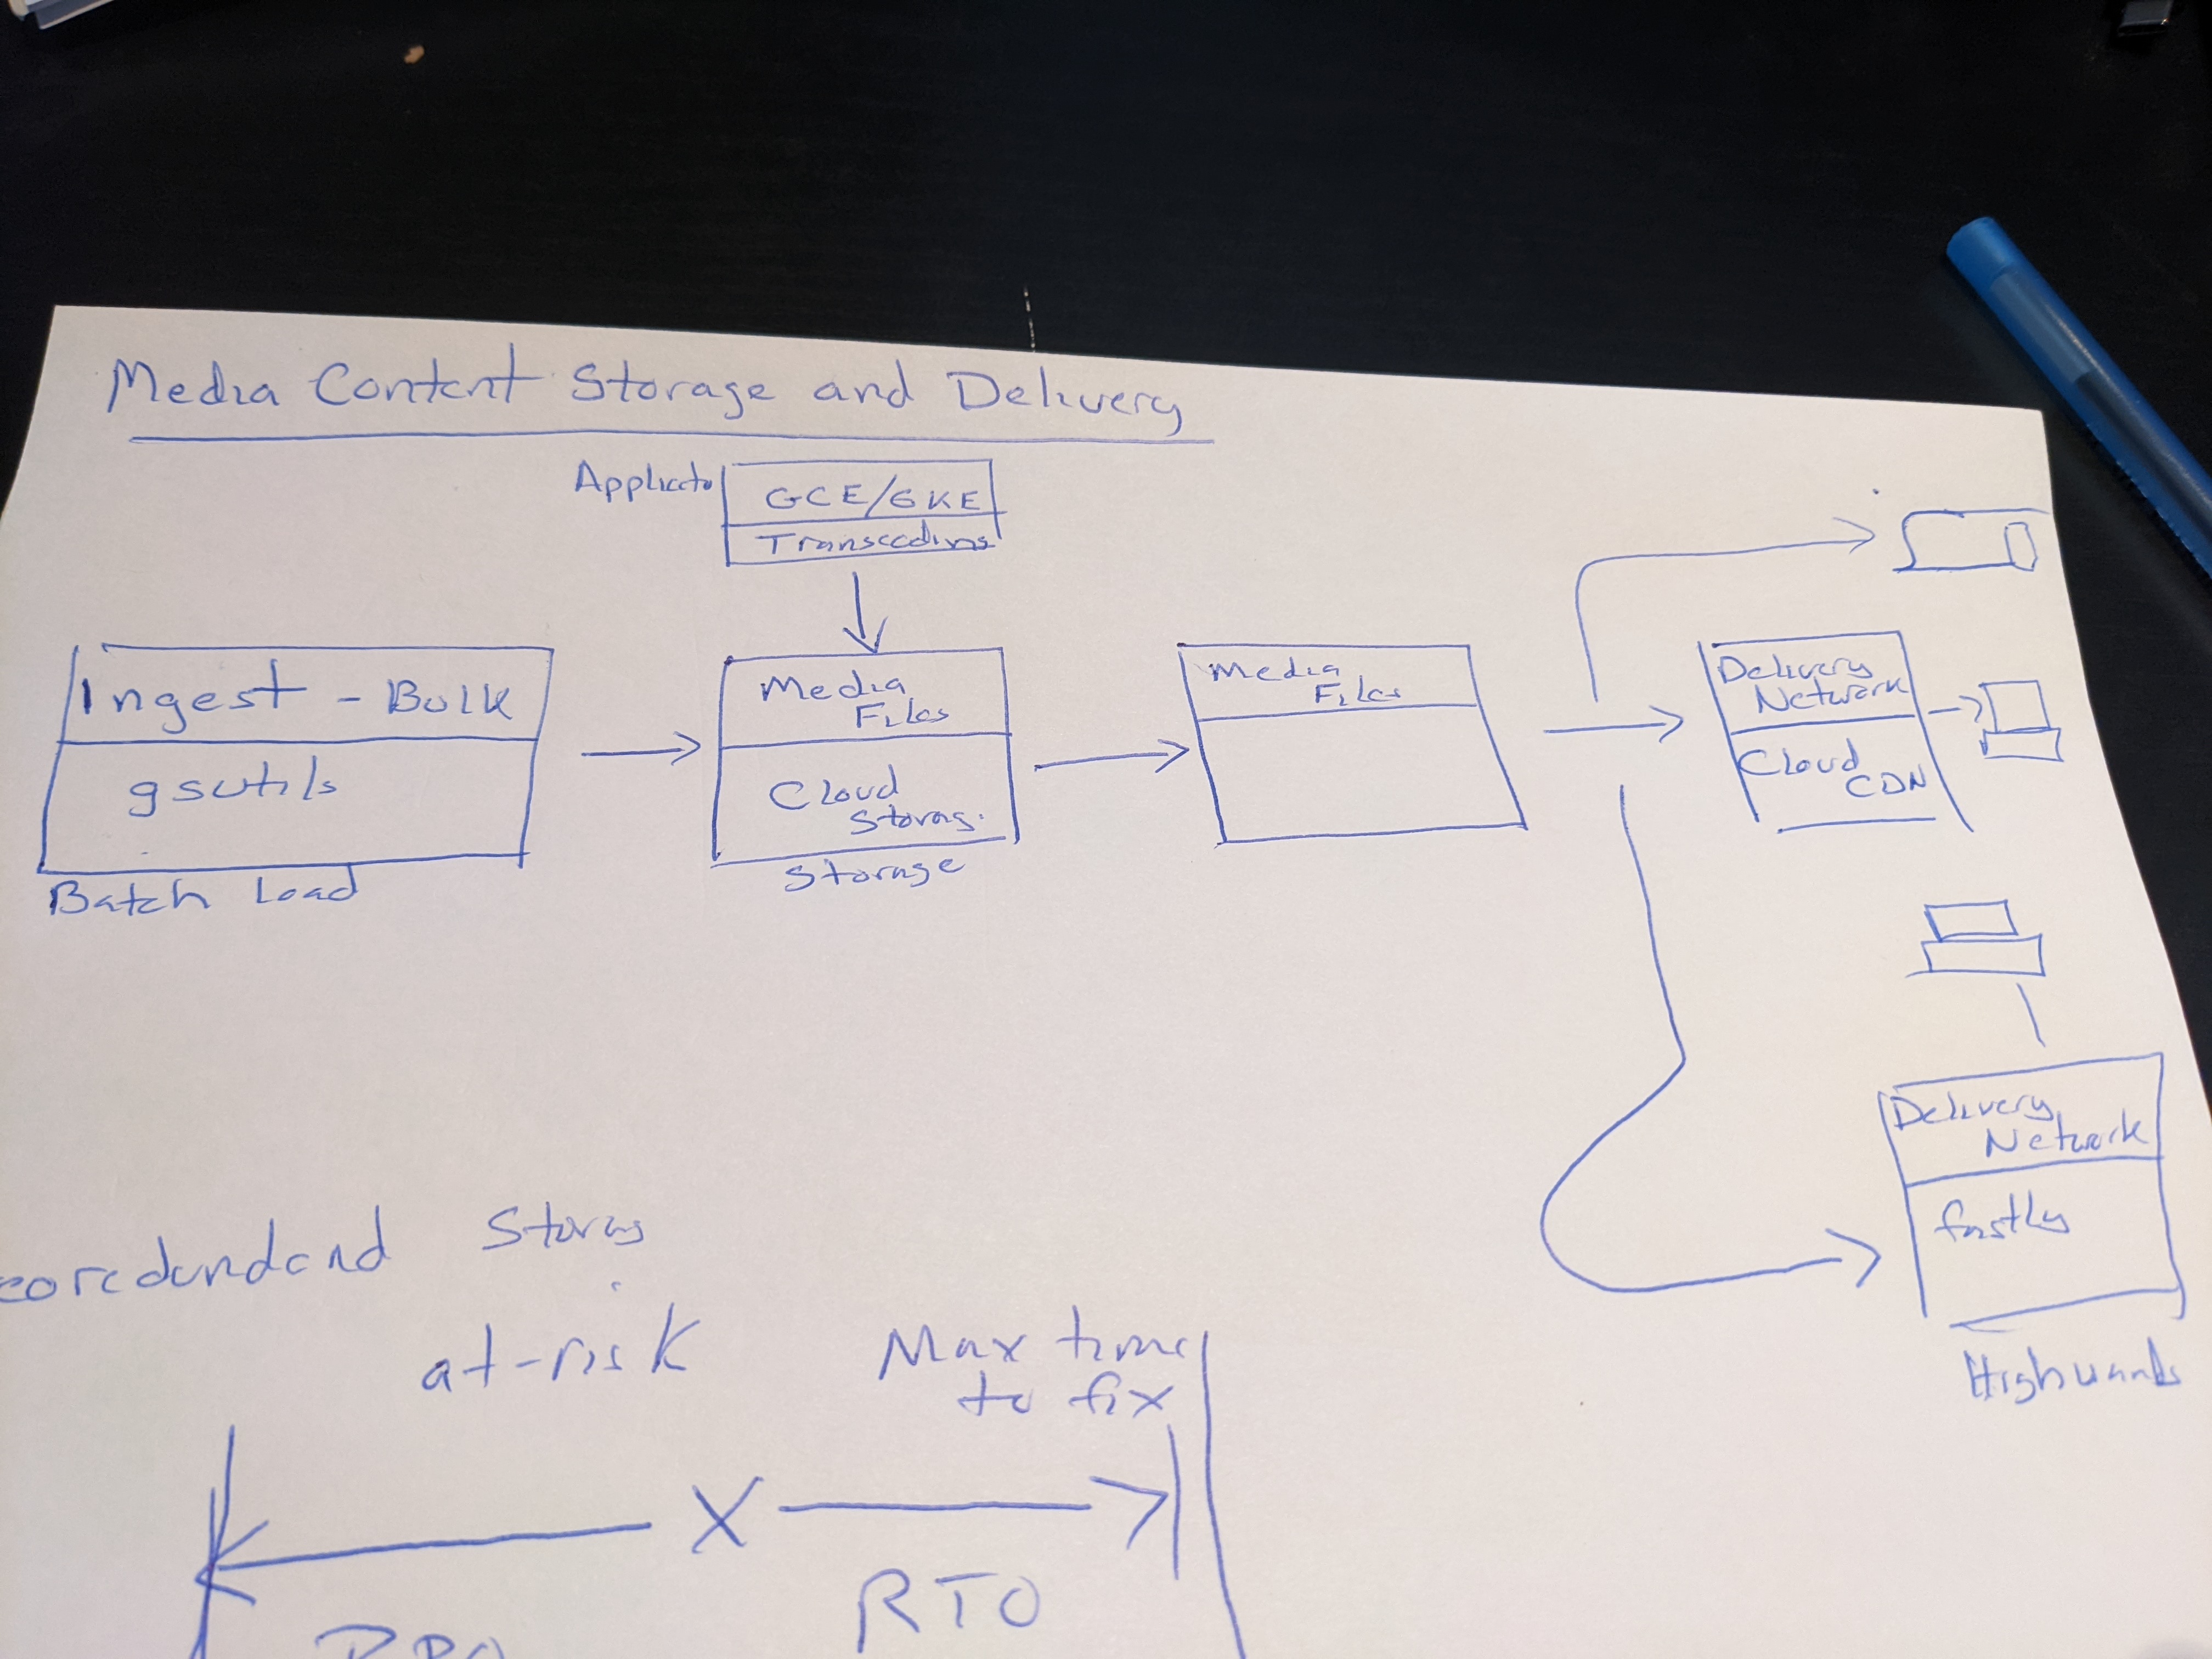 Media Content Storage and Delivery
Applicato
GCE/GKE
Transcoding
Ingest - Bulk
gsutils
Batch Load
Media
Files
Cloud
Storag.
Storage
Media
Files
Delivery
Network
Cloud
CDN
Delivery
Network
fastly
eoredundand Storag
at-risk
Max time
to fix
X
RTO
RPO